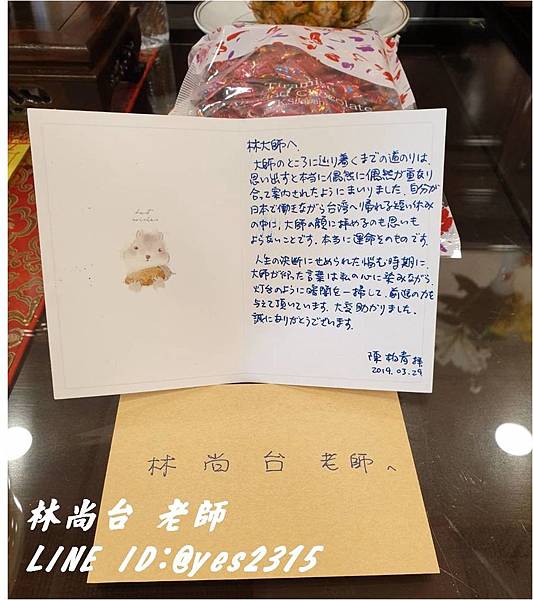 Tiramisu
Almond Chocolate
best
wishes
林大師へ
大師のところに辿り着くまでの道のりは、
思い出すと本当に偶然に偶然が重なり
合って案内されたようにまいりました。自分が
日本で働きながら台湾へ帰れる短い休み
の中に、大師の顔に拝めるのも思いも
よらないことです。本当に運命そのものです。
人生の決断にせめられた悩む時期に、
大師が仰った言葉は私の心に染みながら、
灯台のように暗闇を一掃して、前進の力を
与えて頂いています。大変助かりました。
誠にありがとうございます。
陳柏青 様
2019.03.29
林尚台老師へ
林尚台 老師
LINE ID:@yes2315